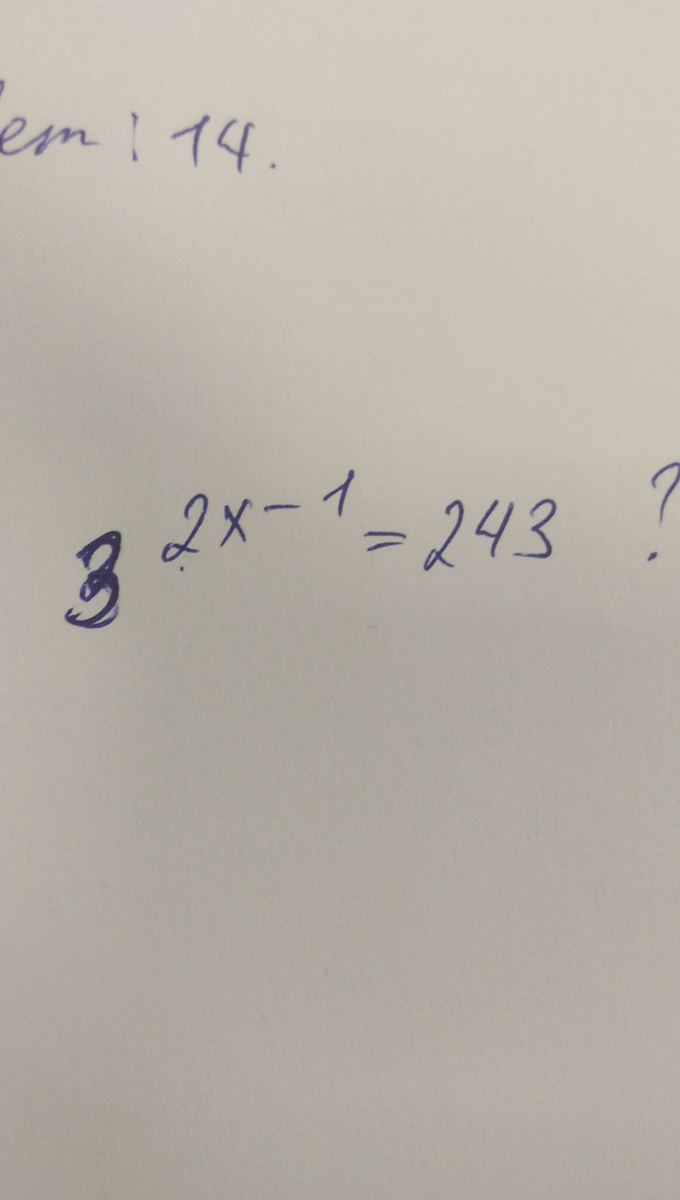 em: 14.
3^2x-1 = 243 ?